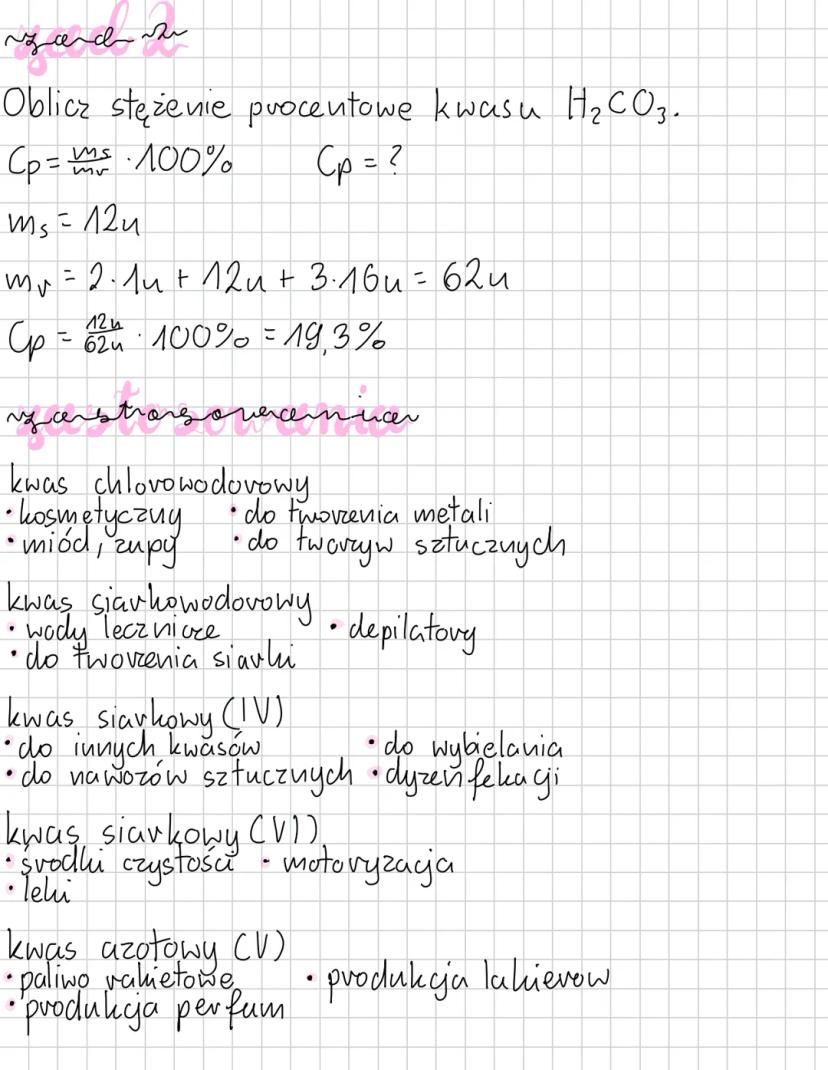 zad 2
Oblicz stężenie procentowe kwasu H₂CO₃.
Cp = ms/mr · 100% Cp = ?
ms = 12u
mr = 2·1u + 12u + 3·16u = 62u
Cp = 12u/62u · 100% = 19,3%
zastosowania
kwas chlorowodorowy
• kosmetyczny • do tworzenia metali
• miód, zupy • do tworzyw sztucznych
kwas siarkowodorowy
• wody lecznicze • depilatory
• do tworzenia siarki
kwas siarkowy (IV)
• do innych kwasów • do wybielania
• do nawozów sztucznych • dyzenfekacji
kwas siarkowy (VI)
• środki czystości • motoryzacja
• leki
kwas azotowy (V)
• paliwo rakietowe • produkcja lakierow
• produkcja perfum